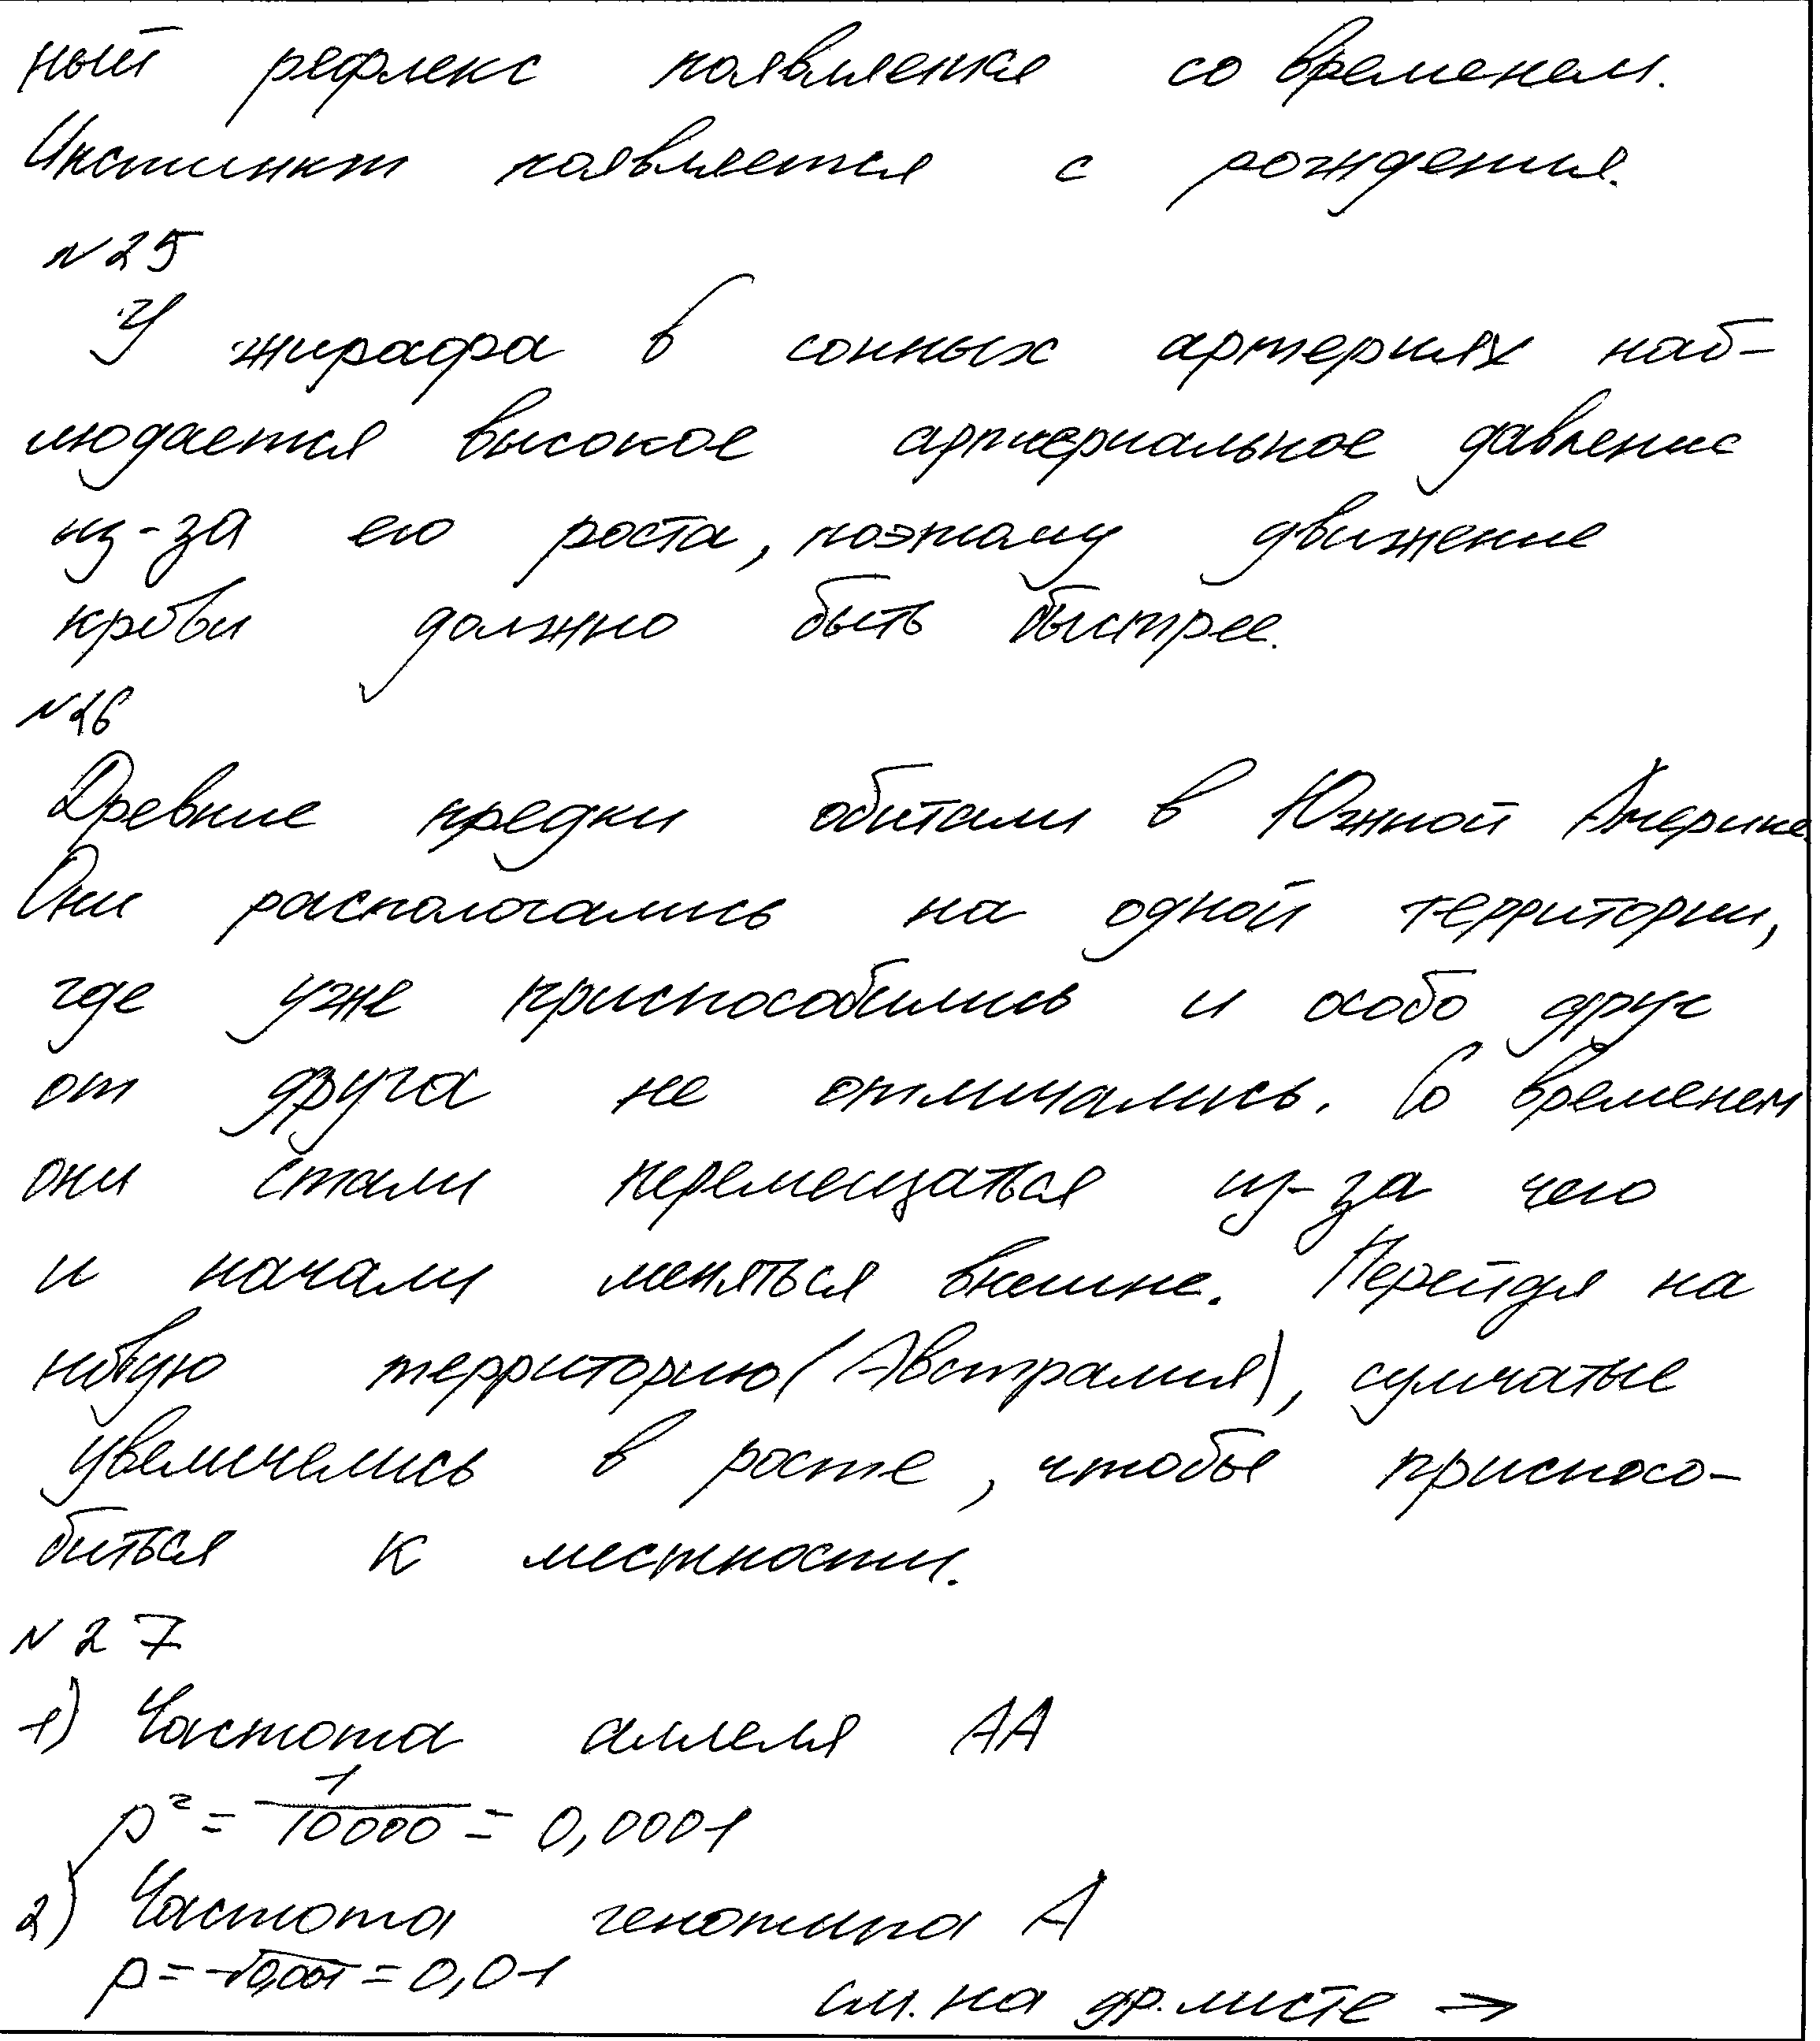 ный рефлекс появляется со временем.
Инстинкт появляется с рождения.
№25
У жирафа в сонных артериях наб-
людается высокое артериальное давление
из-за его роста, поэтому движение
крови должно быть быстрее.
№26
Древние предки обитали в Южной Америке.
Они распологались на одной территории,
где уже приспособились и особо друг
от друга не отличались. Со временем
они стали перемещаться из-за чего
и начали меняться внешне. Перейдя на
новую территорию (Австралия), сумчатые
увеличелись в росте, чтобы приспосо-
биться к местности.
№27
1) Частота аллеля АА
p² = 1/10000 = 0,0001
2) Частота генотипа А
p = √0,0001 = 0,01
см. на др. листе →